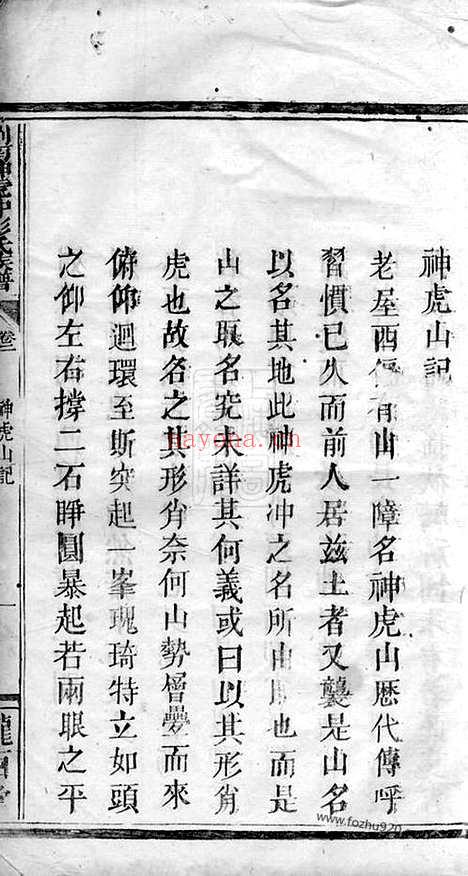 神虎山記
老屋西偏有山一障名神虎山歷代傳呼
習慣已久而前人居茲土者又襲是山名
以名其地此神虎冲之名所由昉也而是
山之取名究未詳其何義或曰以其形肖
虎也故名之其形肖奈何山勢層疊而來
俯仰迴環至斯突起一峯瑰琦特立如頭
之仰左右撐二石睜圓暴起若兩眼之平
神虎冲彭氏族譜
卷二
神虎山記
一
nayona.cn
www.fozhu920.com